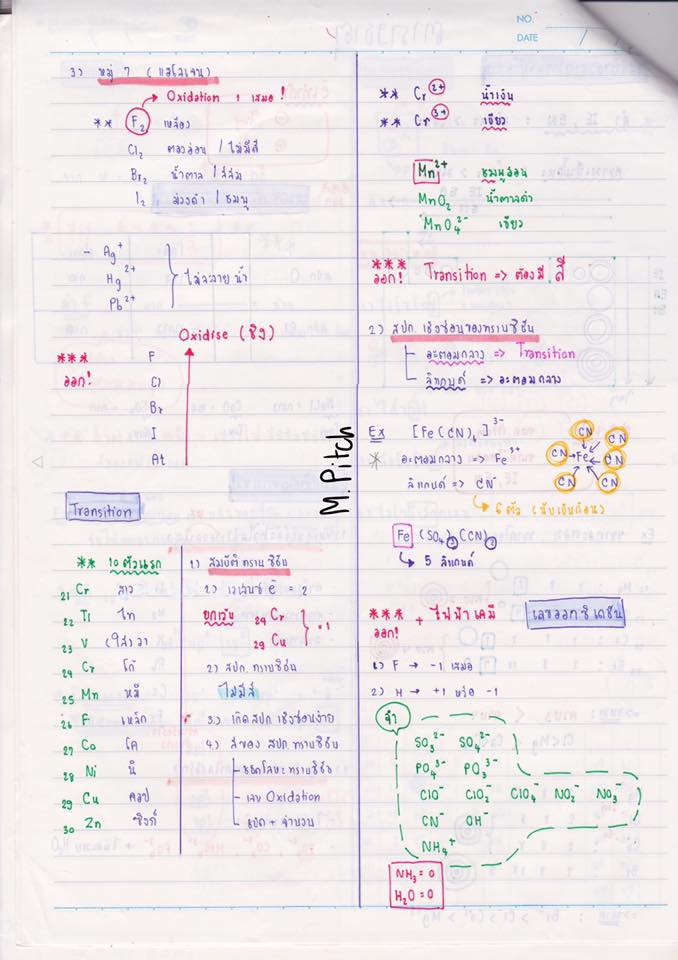 NO.
DATE
3) หมู่ 7 (แฮโลเจน)
Oxidation 1 เสมอ !
** F₂ เหลือง
Cl₂ ตองอ่อน / ไม่มีสี
Br₂ น้ำตาล / สีส้ม
I₂ ม่วงดำ / ชมพู
- Ag⁺
Hg²⁺
Pb²⁺
ไม่ละลายน้ำ
Oxidise (ชิง)
*** ออก!
F
Cl
Br
I
At
Transition
** 10 ตัวแรก
21 Cr สาว
22 Ti ไท
23 V (ใส่) วา
24 Cr โก้
25 Mn หมี
26 F เหล็ก
27 Co โค
28 Ni นิ
29 Cu คอป
30 Zn ซิงก์
1) สมบัติทรานซิชัน
1) เวเลนซ์ e⁻ = 2
ยกเว้น ₂₄Cr
₂₉Cu
= 1
2) สปก. ทรานซิชัน
ไม่มีสี
3) เกิดสปก. เชิงซ้อนง่าย
4) สีของ สปก. ทรานซิชัน
- ชนิดโลหะทรานซิชัน
- เลข Oxidation
- ชนิด + จำนวน
M. Pitch
** Cr²⁺ น้ำเงิน
** Cr³⁺ เขียว
Mn²⁺ ชมพูอ่อน
MnO₂ น้ำตาลดำ
MnO₄²⁻ เขียว
*** ออก! Transition => ต้องมี สี
2) สปก. เชิงซ้อนของทรานซิชัน
อะตอมกลาง => Transition
ลิแกนด์ => อะตอมกลาง
Ex [Fe(CN)₆]³⁻
* อะตอมกลาง => Fe³⁺
ลิแกนด์ => CN⁻
6 ตัว (นับเป็นก้อน)
CN
CN
CN
CN
CN
CN
Fe
Fe (SO₄)₃(CN)₂
5 ลิแกนด์
*** ออก! + ไฟฟ้าเคมี
เลขออกซิเดชัน
1) F → -1 เสมอ
2) H → +1 หรือ -1
จำ
SO₃²⁻ SO₄²⁻
PO₄³⁻ PO₃³⁻
ClO⁻ ClO₂⁻ ClO₄⁻ NO₂⁻ NO₃⁻
CN⁻ OH⁻
NH₄⁺
NH₃ = 0
H₂O = 0